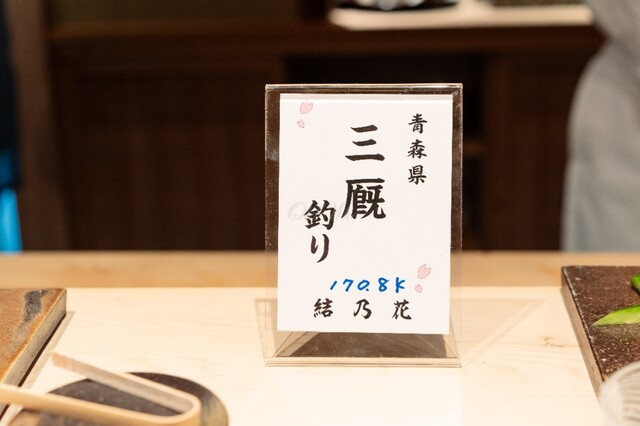 青森県
三厩
釣り
170.8K
結乃花